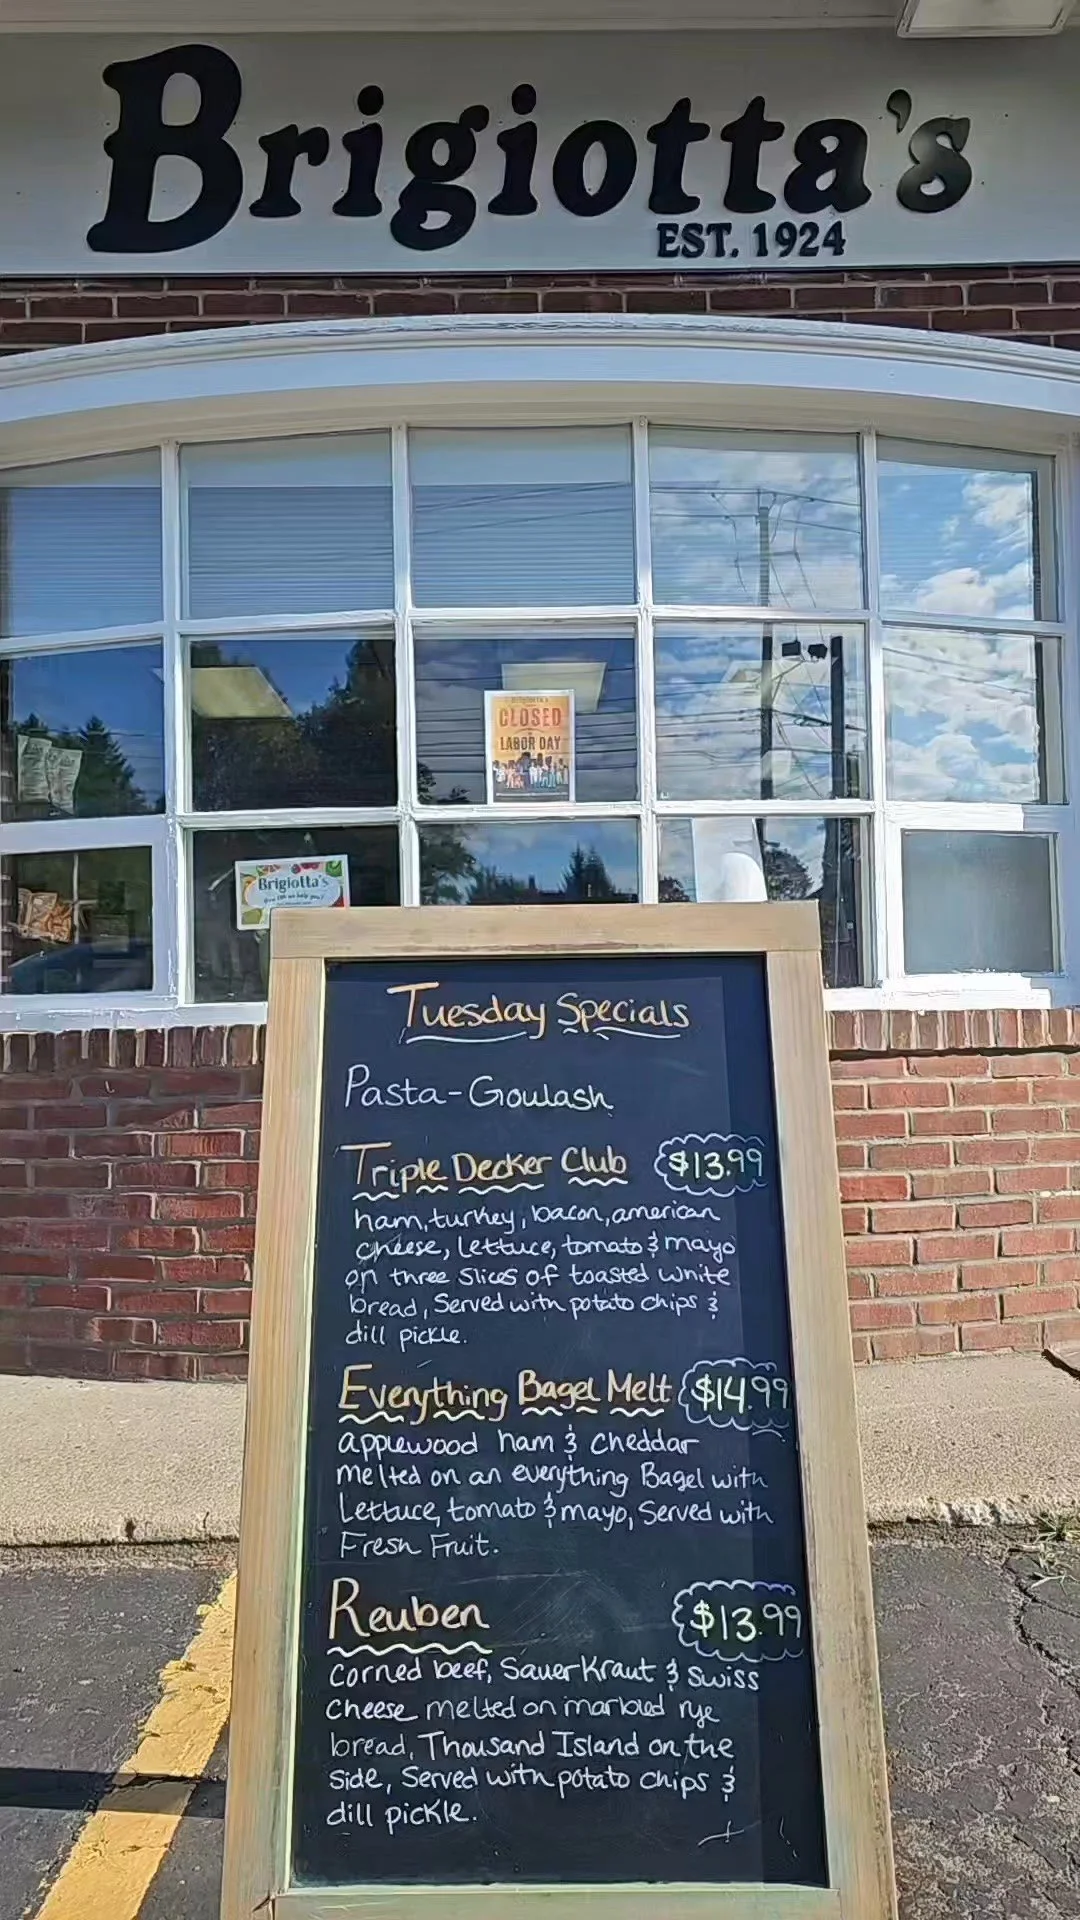 Brigiotta's
EST. 1924
Brigiotta's
CLOSED
LABOR DAY
Brigiotta's
Tuesday Specials
Pasta-Goulash
Triple Decker Club $13.99
ham, turkey, bacon, american
cheese, lettuce, tomato & mayo
on three slices of toasted white
bread, Served with potato chips &
dill pickle.
Everything Bagel Melt $14.99
applewood ham & cheddar
melted on an everything Bagel with
Lettuce, tomato & mayo, Served with
Fresh Fruit.
Reuben $13.99
corned beef, SauerKraut & swiss
cheese melted on marbled rye
bread, Thousand Island on the
side, Served with potato chips &
dill pickle.